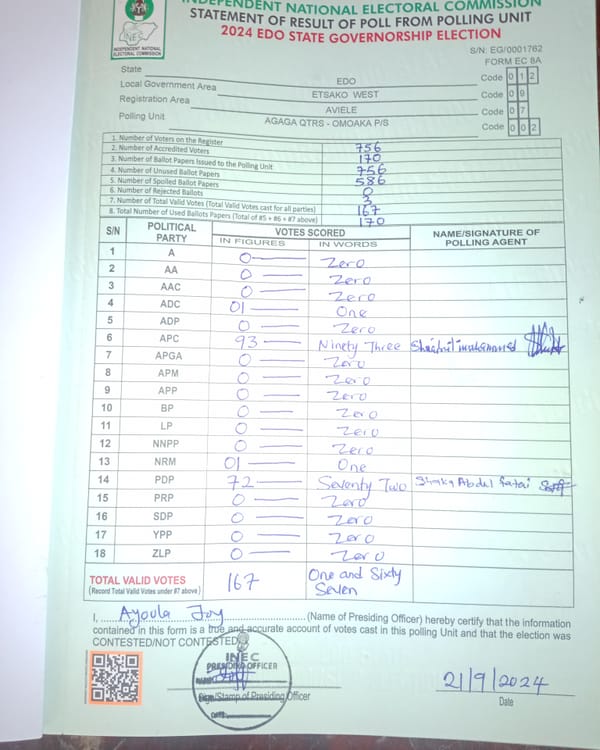 INDEPENDENT NATIONAL ELECTORAL COMMISSION
STATEMENT OF RESULT OF POLL FROM POLLING UNIT
2024 EDO STATE GOVERNORSHIP ELECTION
INEC
INDEPENDENT NATIONAL
ELECTORAL COMMISSION
S/N: EG/0001762
FORM EC 8A
State EDO Code 0 1 2
Local Government Area ETSAKO WEST Code 0 9
Registration Area AVIELE Code 0 7
Polling Unit AGAGA QTRS - OMOAKA P/S Code 0 0 2
1. Number of Voters on the Register 756
2. Number of Accredited Voters 170
3. Number of Ballot Papers Issued to the Polling Unit 756
4. Number of Unused Ballot Papers 586
5. Number of Spoiled Ballot Papers 0
6. Number of Rejected Ballots 3
7. Number of Total Valid Votes (Total Valid Votes cast for all parties) 167
8. Total Number of Used Ballots Papers (Total of #5 + #6 + #7 above) 170
S/N POLITICAL PARTY VOTES SCORED NAME/SIGNATURE OF POLLING AGENT
IN FIGURES IN WORDS
1 A 0 Zero
2 AA 0 Zero
3 AAC 0 Zero
4 ADC 01 One
5 ADP 0 Zero
6 APC 93 Ninety Three
7 APGA 0 Zero
8 APM 0 Zero
9 APP 0 Zero
10 BP 0 Zero
11 LP 0 Zero
12 NNPP 0 Zero
13 NRM 01 One
14 PDP 72 Seventy Two Shaka Abdel fatai
15 PRP 0 Zero
16 SDP 0 Zero
17 YPP 0 Zero
18 ZLP 0 Zero
TOTAL VALID VOTES 167 One and Sixty
(Record Total Valid Votes under #7 above) Seven
I, Ayoula Joy (Name of Presiding Officer) hereby certify that the information
contained in this form is a true and accurate account of votes cast in this polling Unit and that the election was
CONTESTED/NOT CONTESTED
INEC
PRESIDING OFFICER
Sign/Stamp of Presiding Officer
DATE
21/9/2024
Date